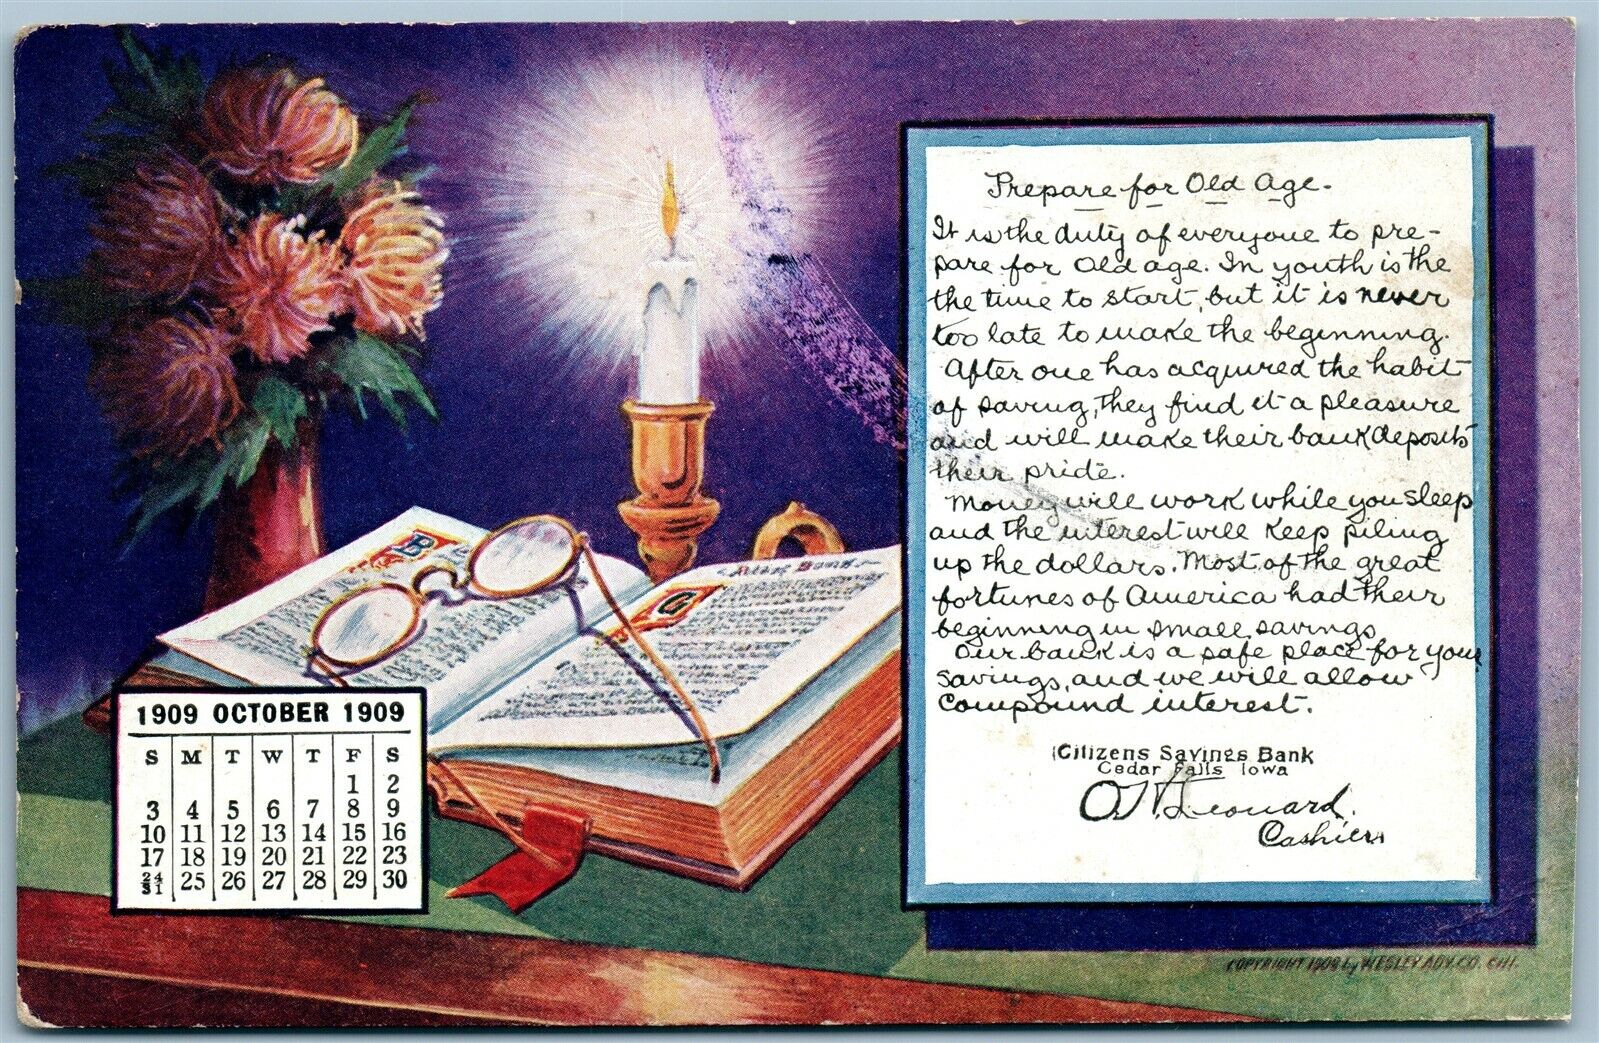 Prepare for Old Age.
It is the duty of everyone to pre-
pare for Old age. In youth is the
the time to start, but it is never
too late to make the beginning.
After one has acquired the habit
of saving, they find it a pleasure
and will make their bank deposits
their pride.
Money will work while you sleep
and the interest will keep piling
up the dollars. Most of the great
fortunes of America had their
beginning in small savings.
Our bank is a safe place for your
savings, and we will allow
compound interest.
Citizens Savings Bank
Cedar Falls Iowa
Leonard.
Cashier
1909 OCTOBER 1909
S M T W T F S
1 2
3 4 5 6 7 8 9
10 11 12 13 14 15 16
17 18 19 20 21 22 23
24/31 25 26 27 28 29 30
COPYRIGHT 1908 by WESLEY ADV. CO. CHI.